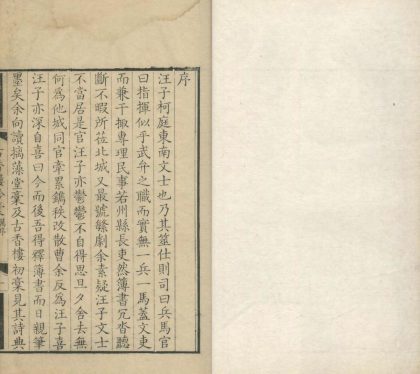 序
汪子柯庭東南文士也乃其筮仕則司曰兵馬官
曰指揮似乎武弁之職而實無一兵一馬蓋文吏
而兼干掫專理民事若州縣長吏然簿書冗沓聽
斷不暇所莅北城又最號繇劇余素疑汪子文士
不當居是官汪子亦鬱鬱不自得思旦夕舍去無
何爲他城同官牽累鐫秩改散曹余反爲汪子喜
汪子亦深自喜曰今而後吾得釋簿書而日親筆
墨矣余向讀摛藻堂稾及古香樓初稾見其詩典